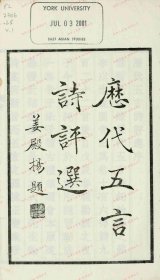 YORK UNIVERSITY
JUL 03 2001
EAST ASIAN STUDIES
歷代五言
詩評選
姜殿揚題